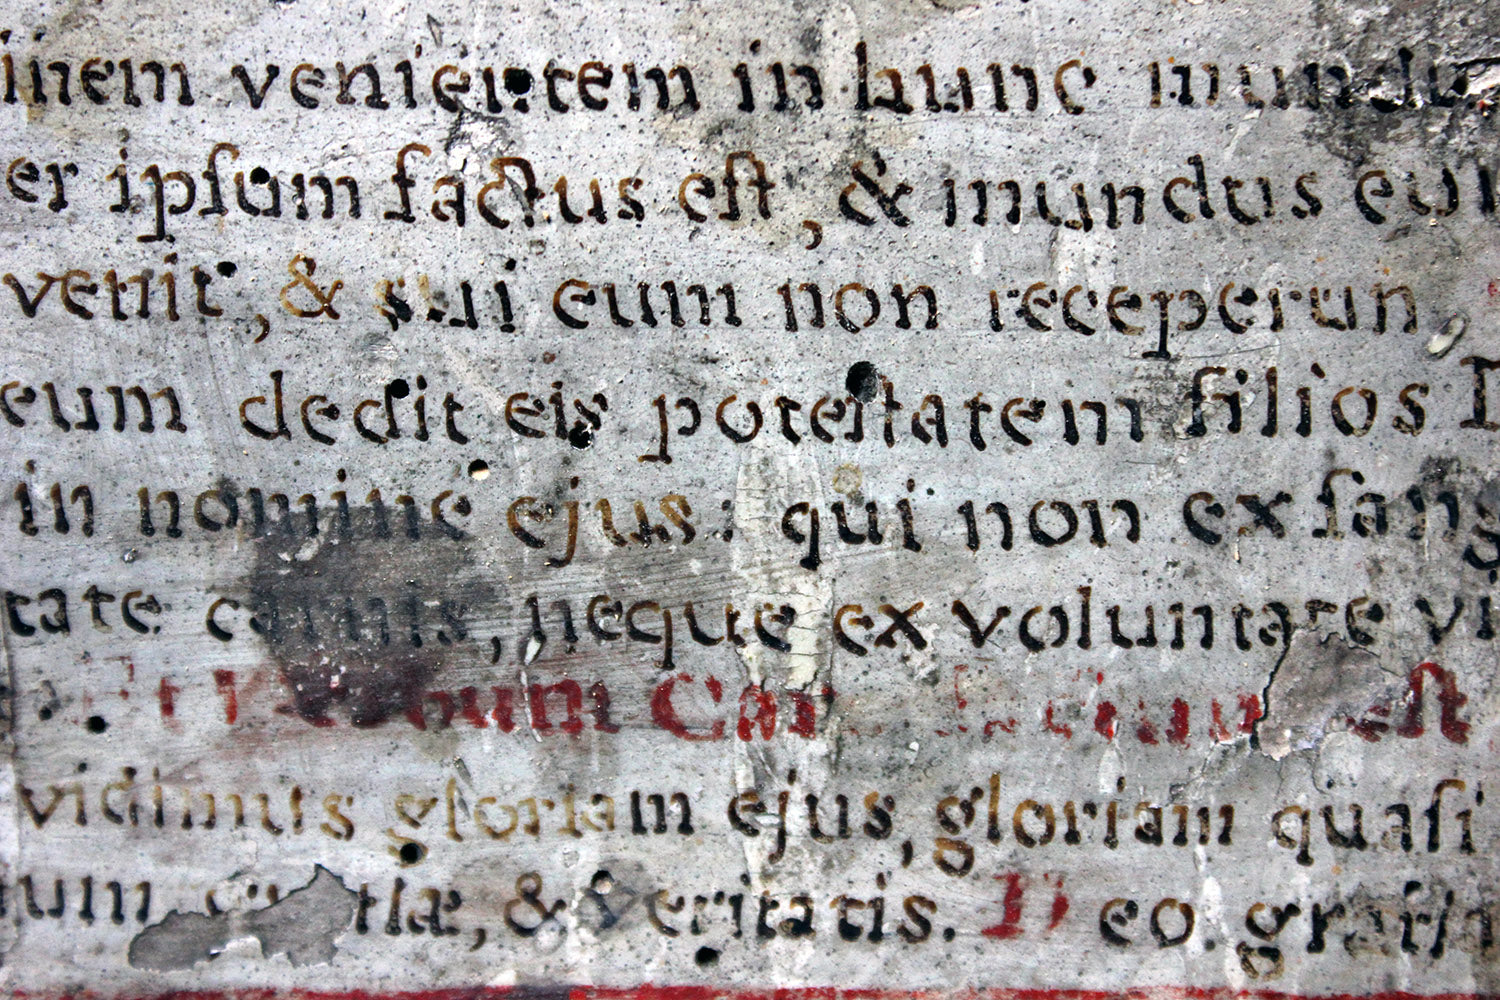 inem venientem in hunc mundu
er ipſum factus eſt, & mundus eum
venit, & sui eum non receperun
eum dedit eis poteſtatem filios D
in nomine ejus: qui non ex ſang
tate carnis, neque ex voluntate vi
Et Verbum Car Factum eſt
vidimus gloriam ejus, gloriam quaſi
um tiæ, & veritatis. D eo gratia